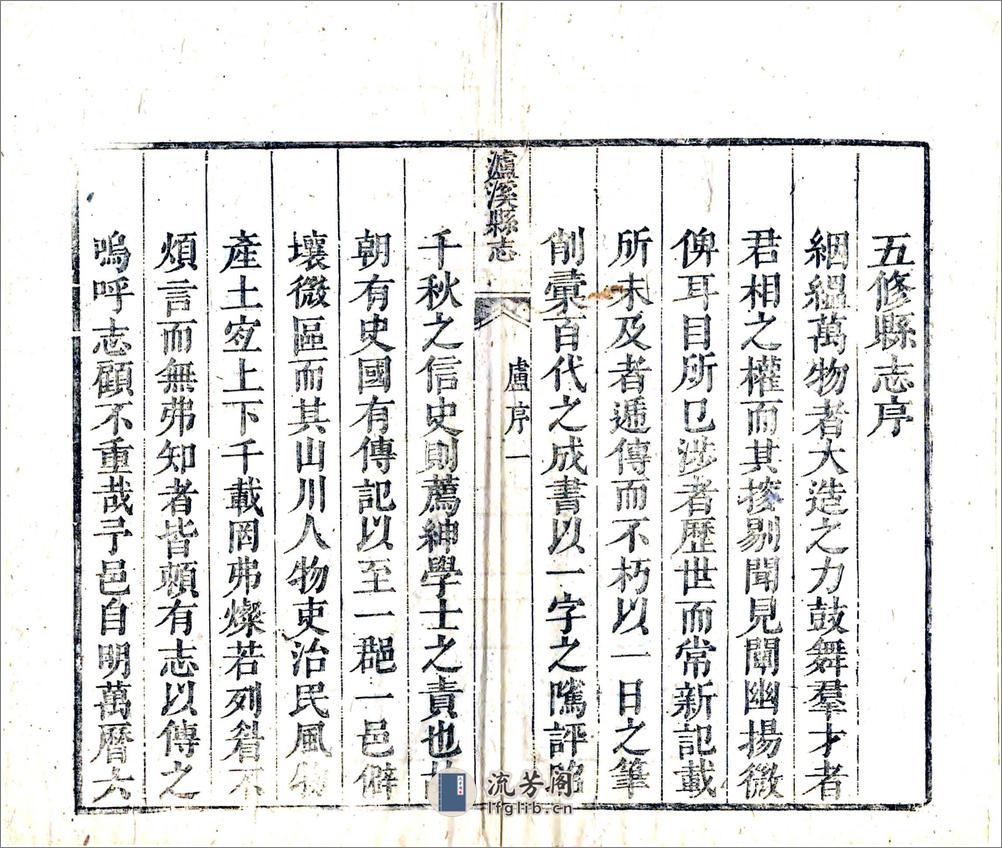 五修縣志序
絪緼萬物者大造之力鼓舞羣才者
君相之權而其搜剔聞見闡幽揚微
俾耳目所已涉者歷世而常新記載
所未及者遞傳而不朽以一日之筆
削彙百代之成書以一字之隲評
瀘溪縣志
盧序 一
千秋之信史則薦紳學士之責也
朝有史國有傳記以至一郡一邑僻
壤微區而其山川人物吏治民風物
產土宜上下千載罔弗燦若列眉不
煩言而無弗知者皆頼有志以傳之
嗚呼志顧不重哉予邑自明萬曆六
流芳阁
lfglib.cn